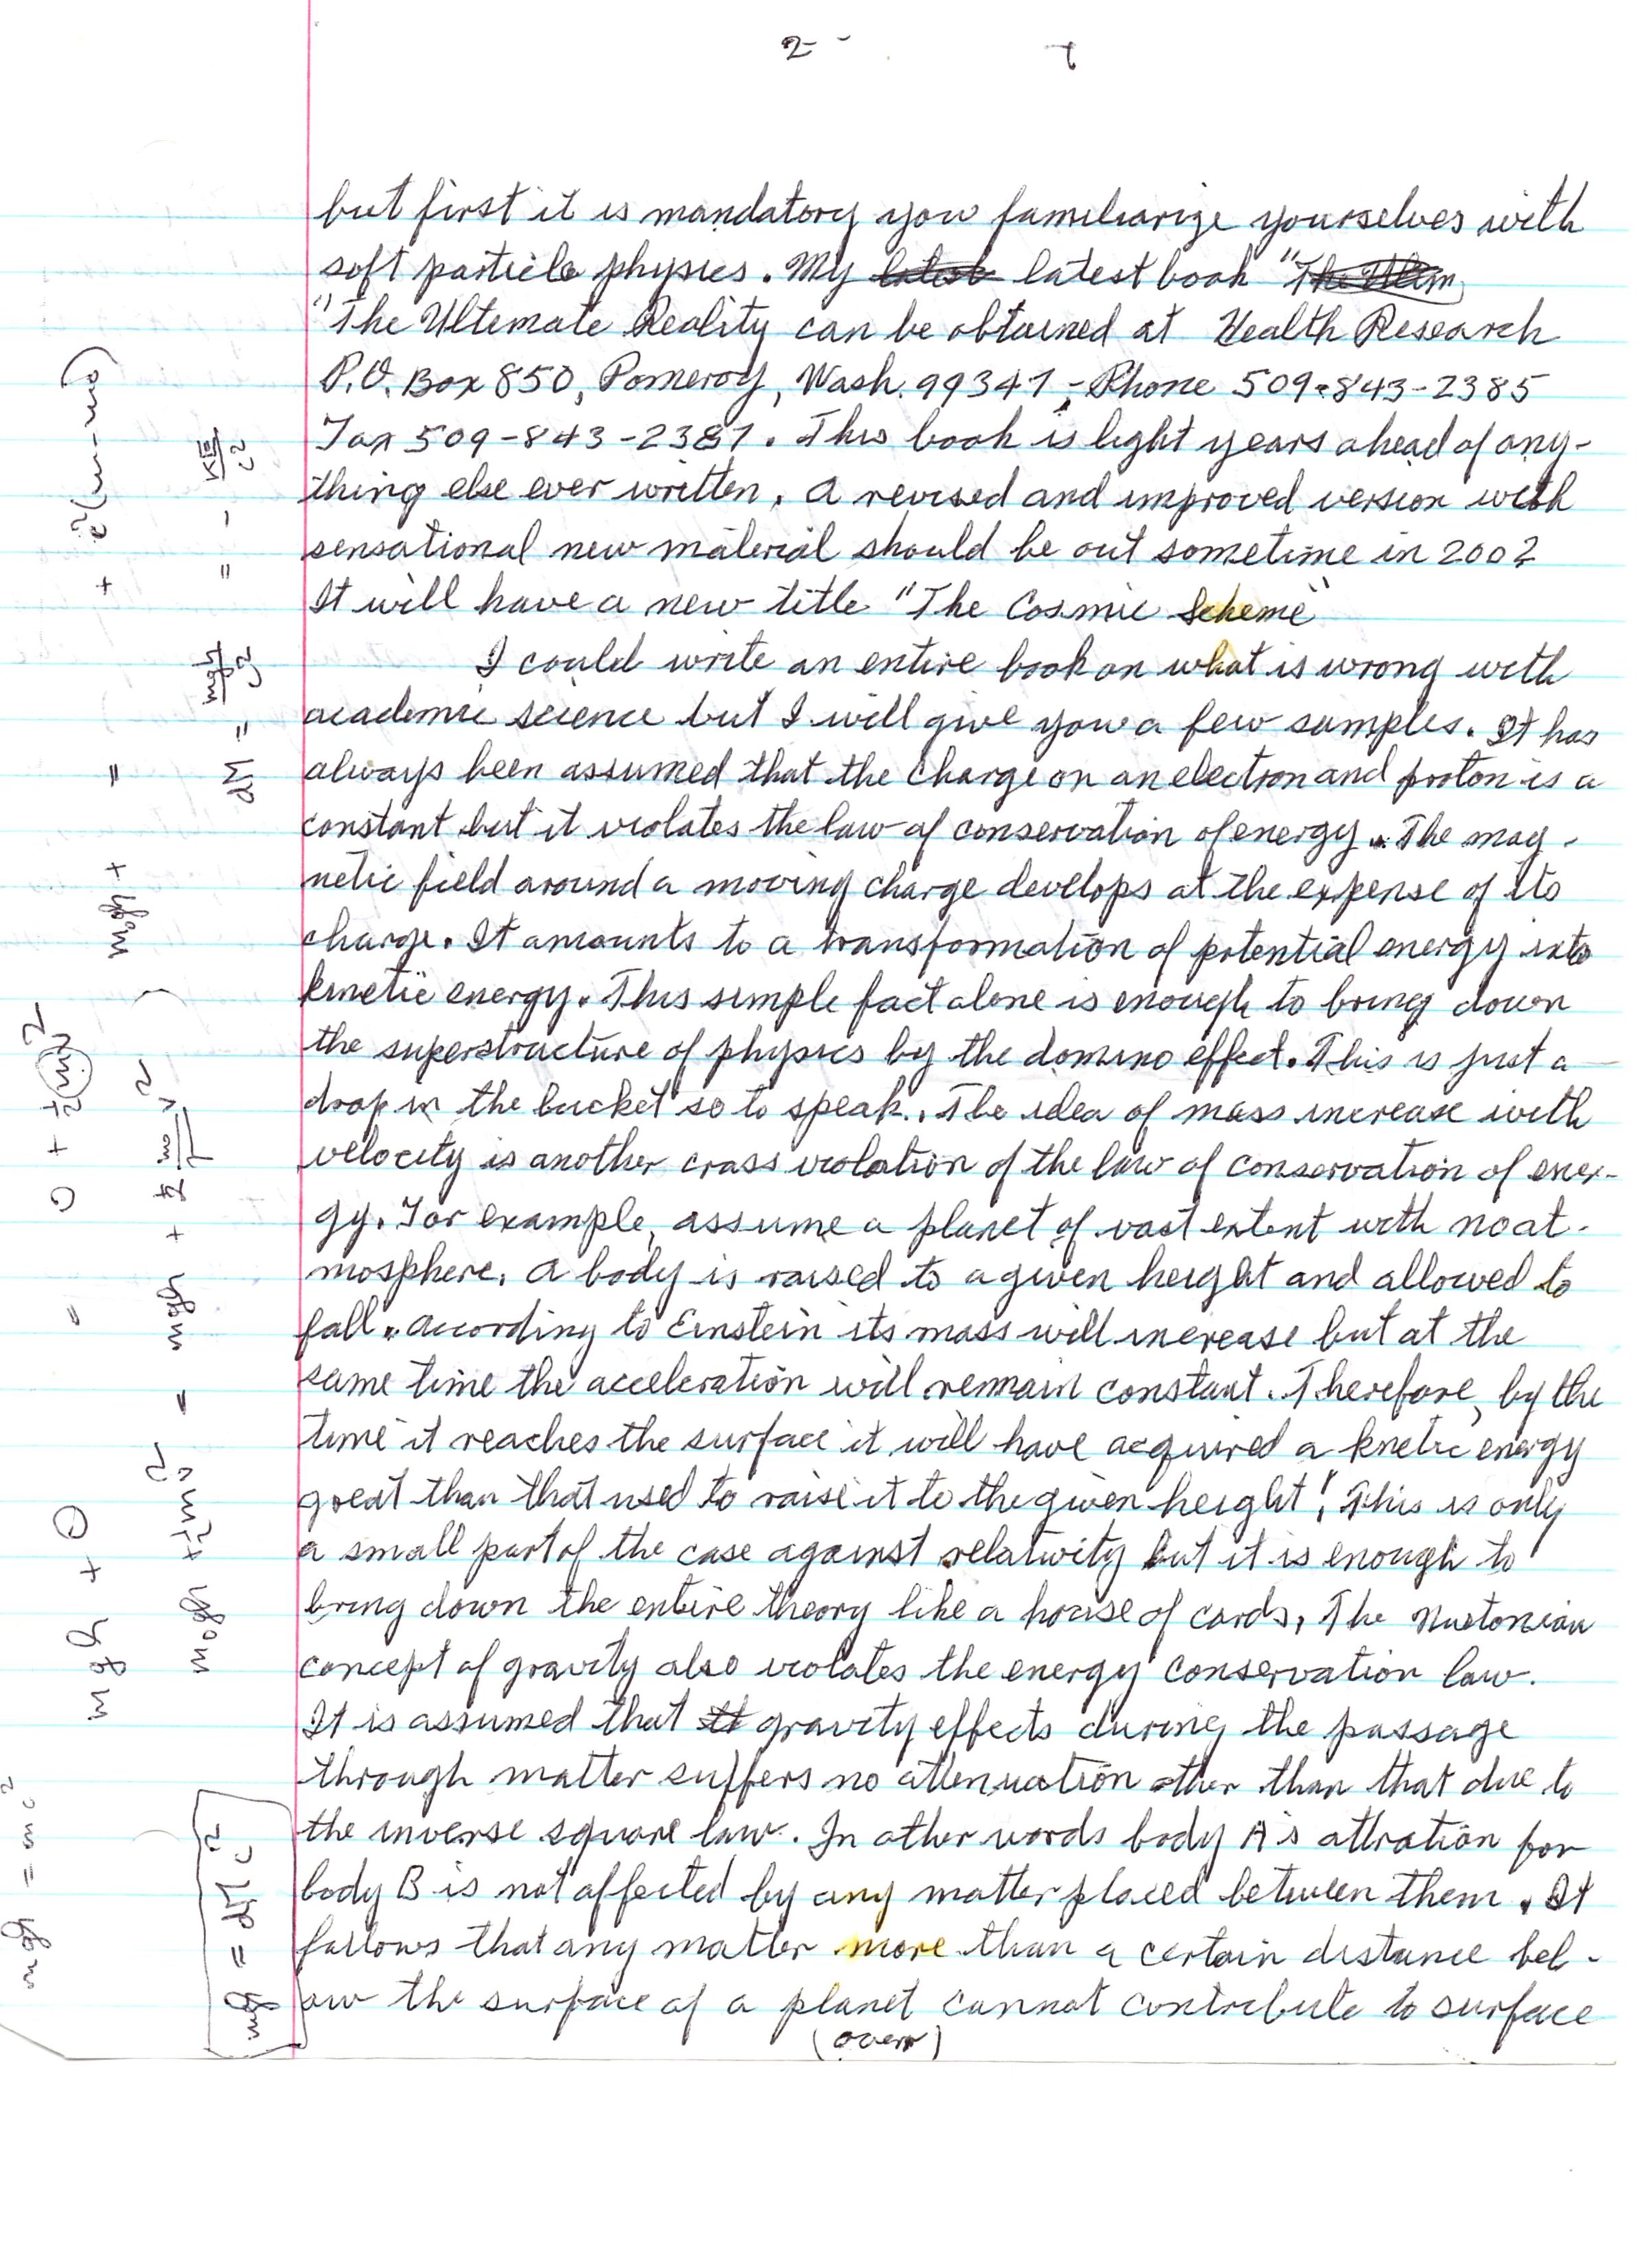 2-
but first it is mandatory you familiarize yourselves with
soft particle physics. My latest book
"The Ultimate Reality can be obtained at Health Research
P.O. Box 850, Pomeroy, Wash. 99347 - Phone 509-843-2385
Fax 509-843-2387. This book is light years ahead of any-
thing else ever written. A revised and improved version with
sensational new material should be out sometime in 2002
It will have a new title "The Cosmic Scheme"
I could write an entire book on what is wrong with
academic science but I will give you a few samples. It has
always been assumed that the charge on an electron and proton is a
constant but it violates the law of conservation of energy. The mag-
netic field around a moving charge develops at the expense of its
charge. It amounts to a transformation of potential energy into
kinetic energy. This simple fact alone is enough to bring down
the superstructure of physics by the domino effect. This is just a
drop in the bucket so to speak. The idea of mass increase with
velocity is another crass violation of the law of conservation of ener-
gy. For example, assume a planet of vast extent with no at-
mosphere. A body is raised to a given height and allowed to
fall. According to Einstein its mass will increase but at the
same time the acceleration will remain constant. Therefore, by the
time it reaches the surface it will have acquired a knetic energy
great than that used to raise it to the given height! This is only
a small part of the case against relativity but it is enough to
bring down the entire theory like a house of cards. The Nuetonian
concept of gravity also violates the energy conservation law.
It is assumed that gravity effects during the passage
through matter suffers no attenuation other than that due to
the inverse square law. In other words body A's attration for
body B is not affected by any matter placed between them. It
follows that any matter more than a certain distance bel-
ow the surface of a planet cannot contribute to surface
(over)
mgh = mc²
mgh + 0 = 0 + ½mv²
mgh = dM c²
dM = mgh/c² = - KE/c²